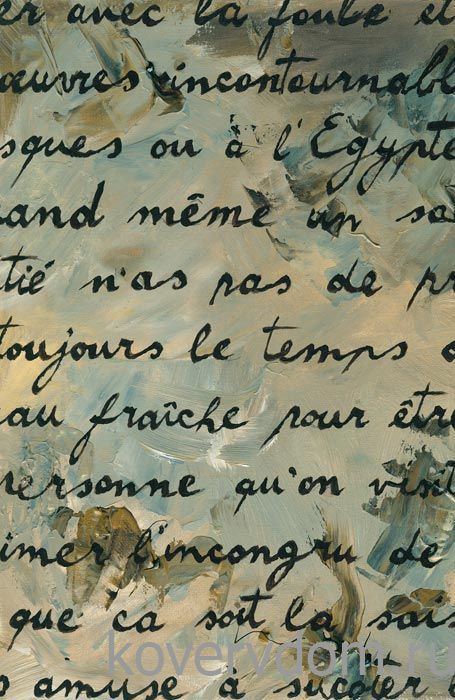 er avec la foule et
œuvres incontournabl
sques ou à l'Egypte
and même un sa
tié n'as pas de pr
toujours le temps
au fraîche pour être
personne qu'on visit
imer l'incongru de
que ca soit la sais
s amuse à suggérer
koverydom.ru